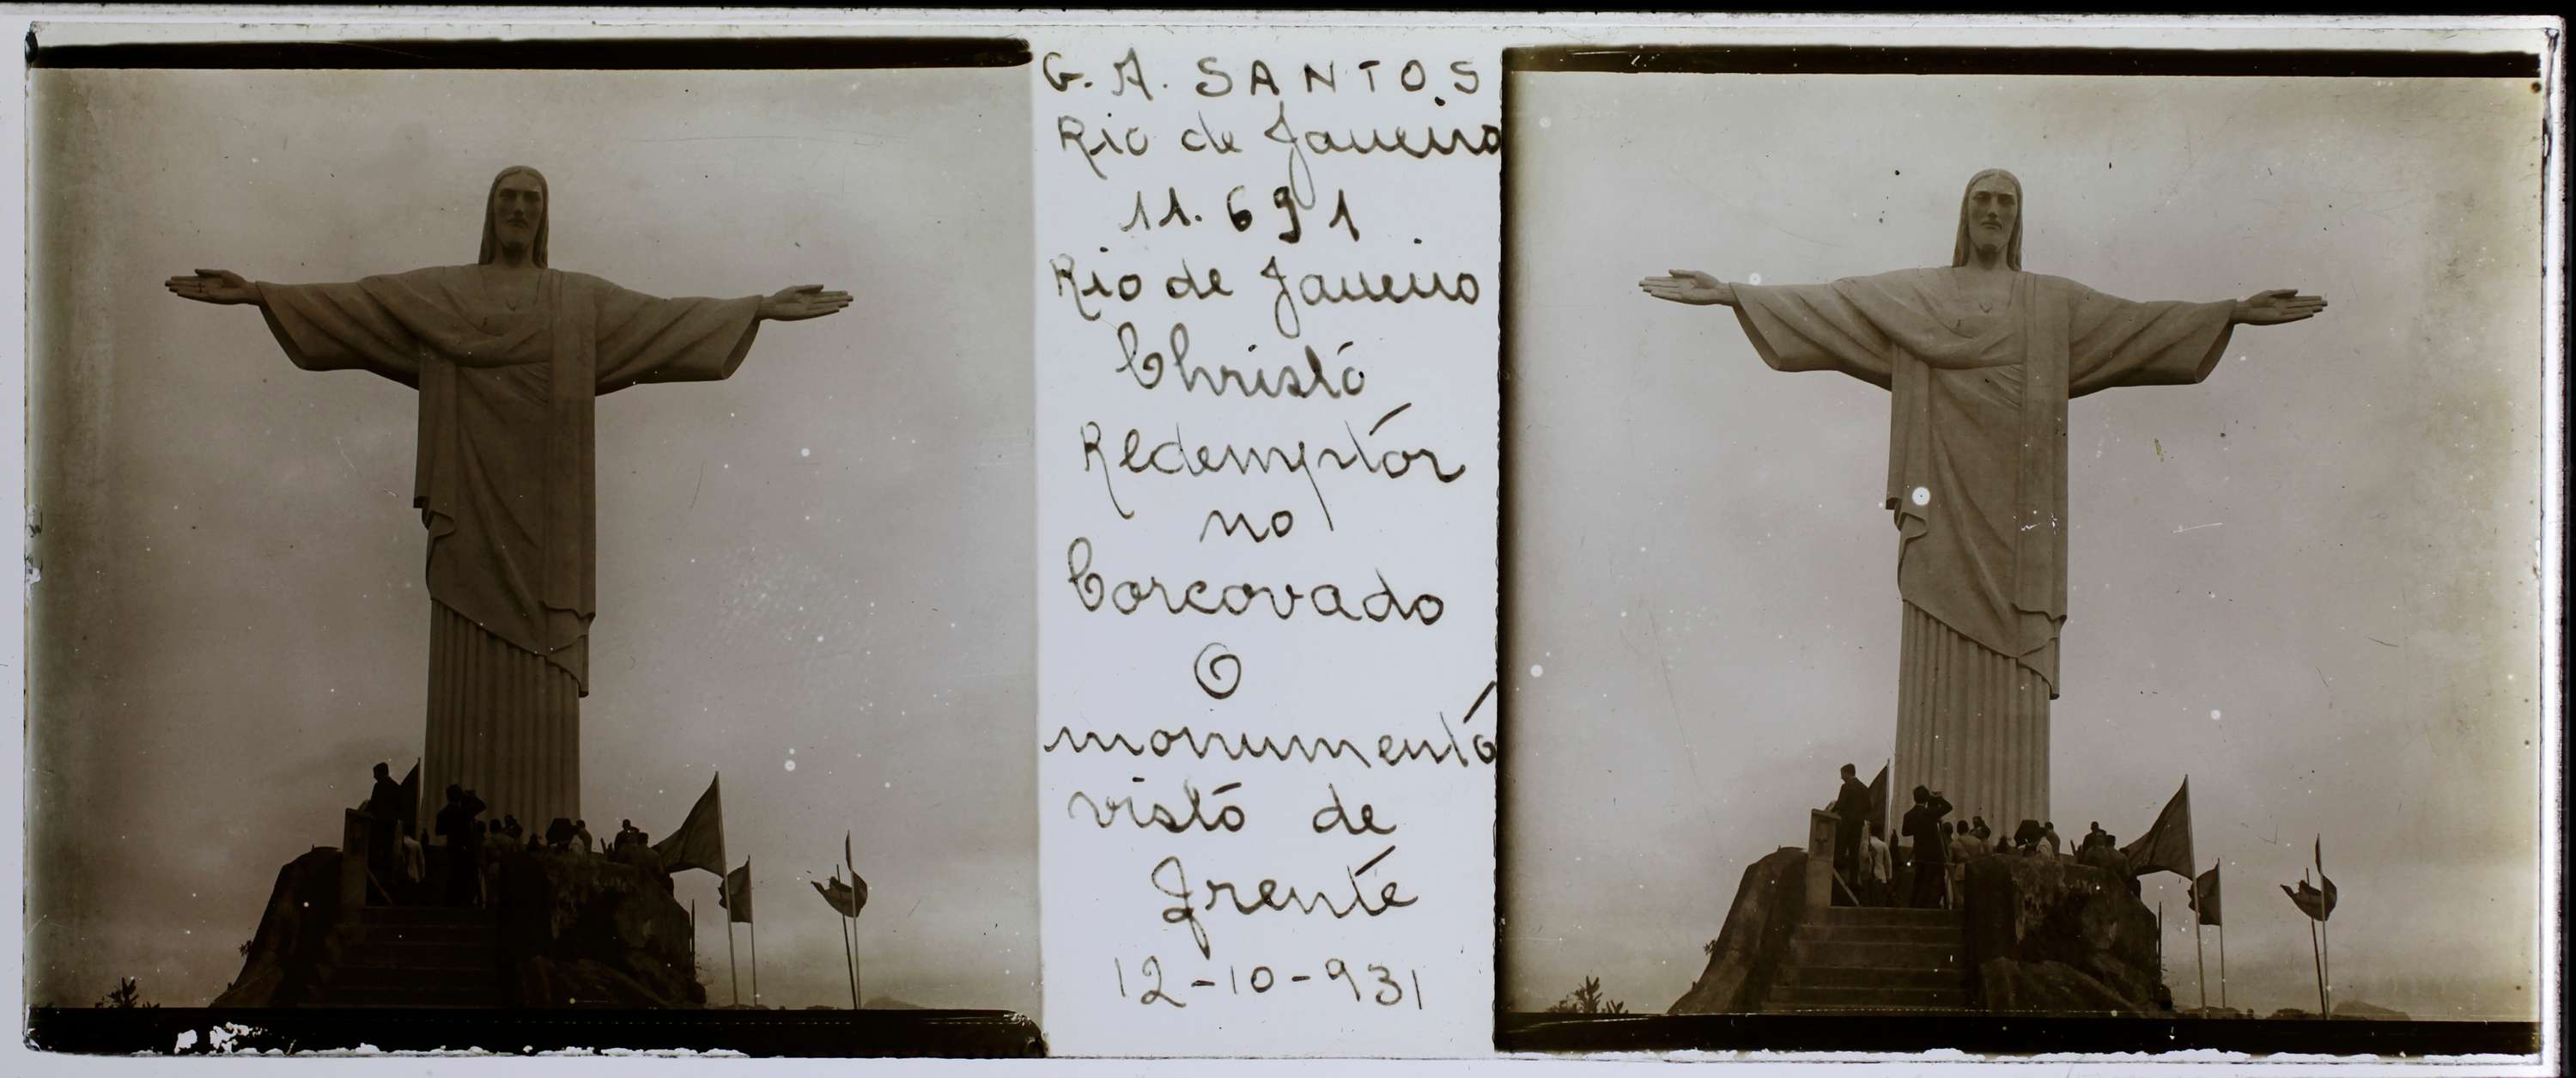 G. A. SANTOS
Rio de Janeiro
11.691
Rio de Janeiro
Christo
Redemptor
no
Corcovado
O
monumento
visto de
frente
12-10-931